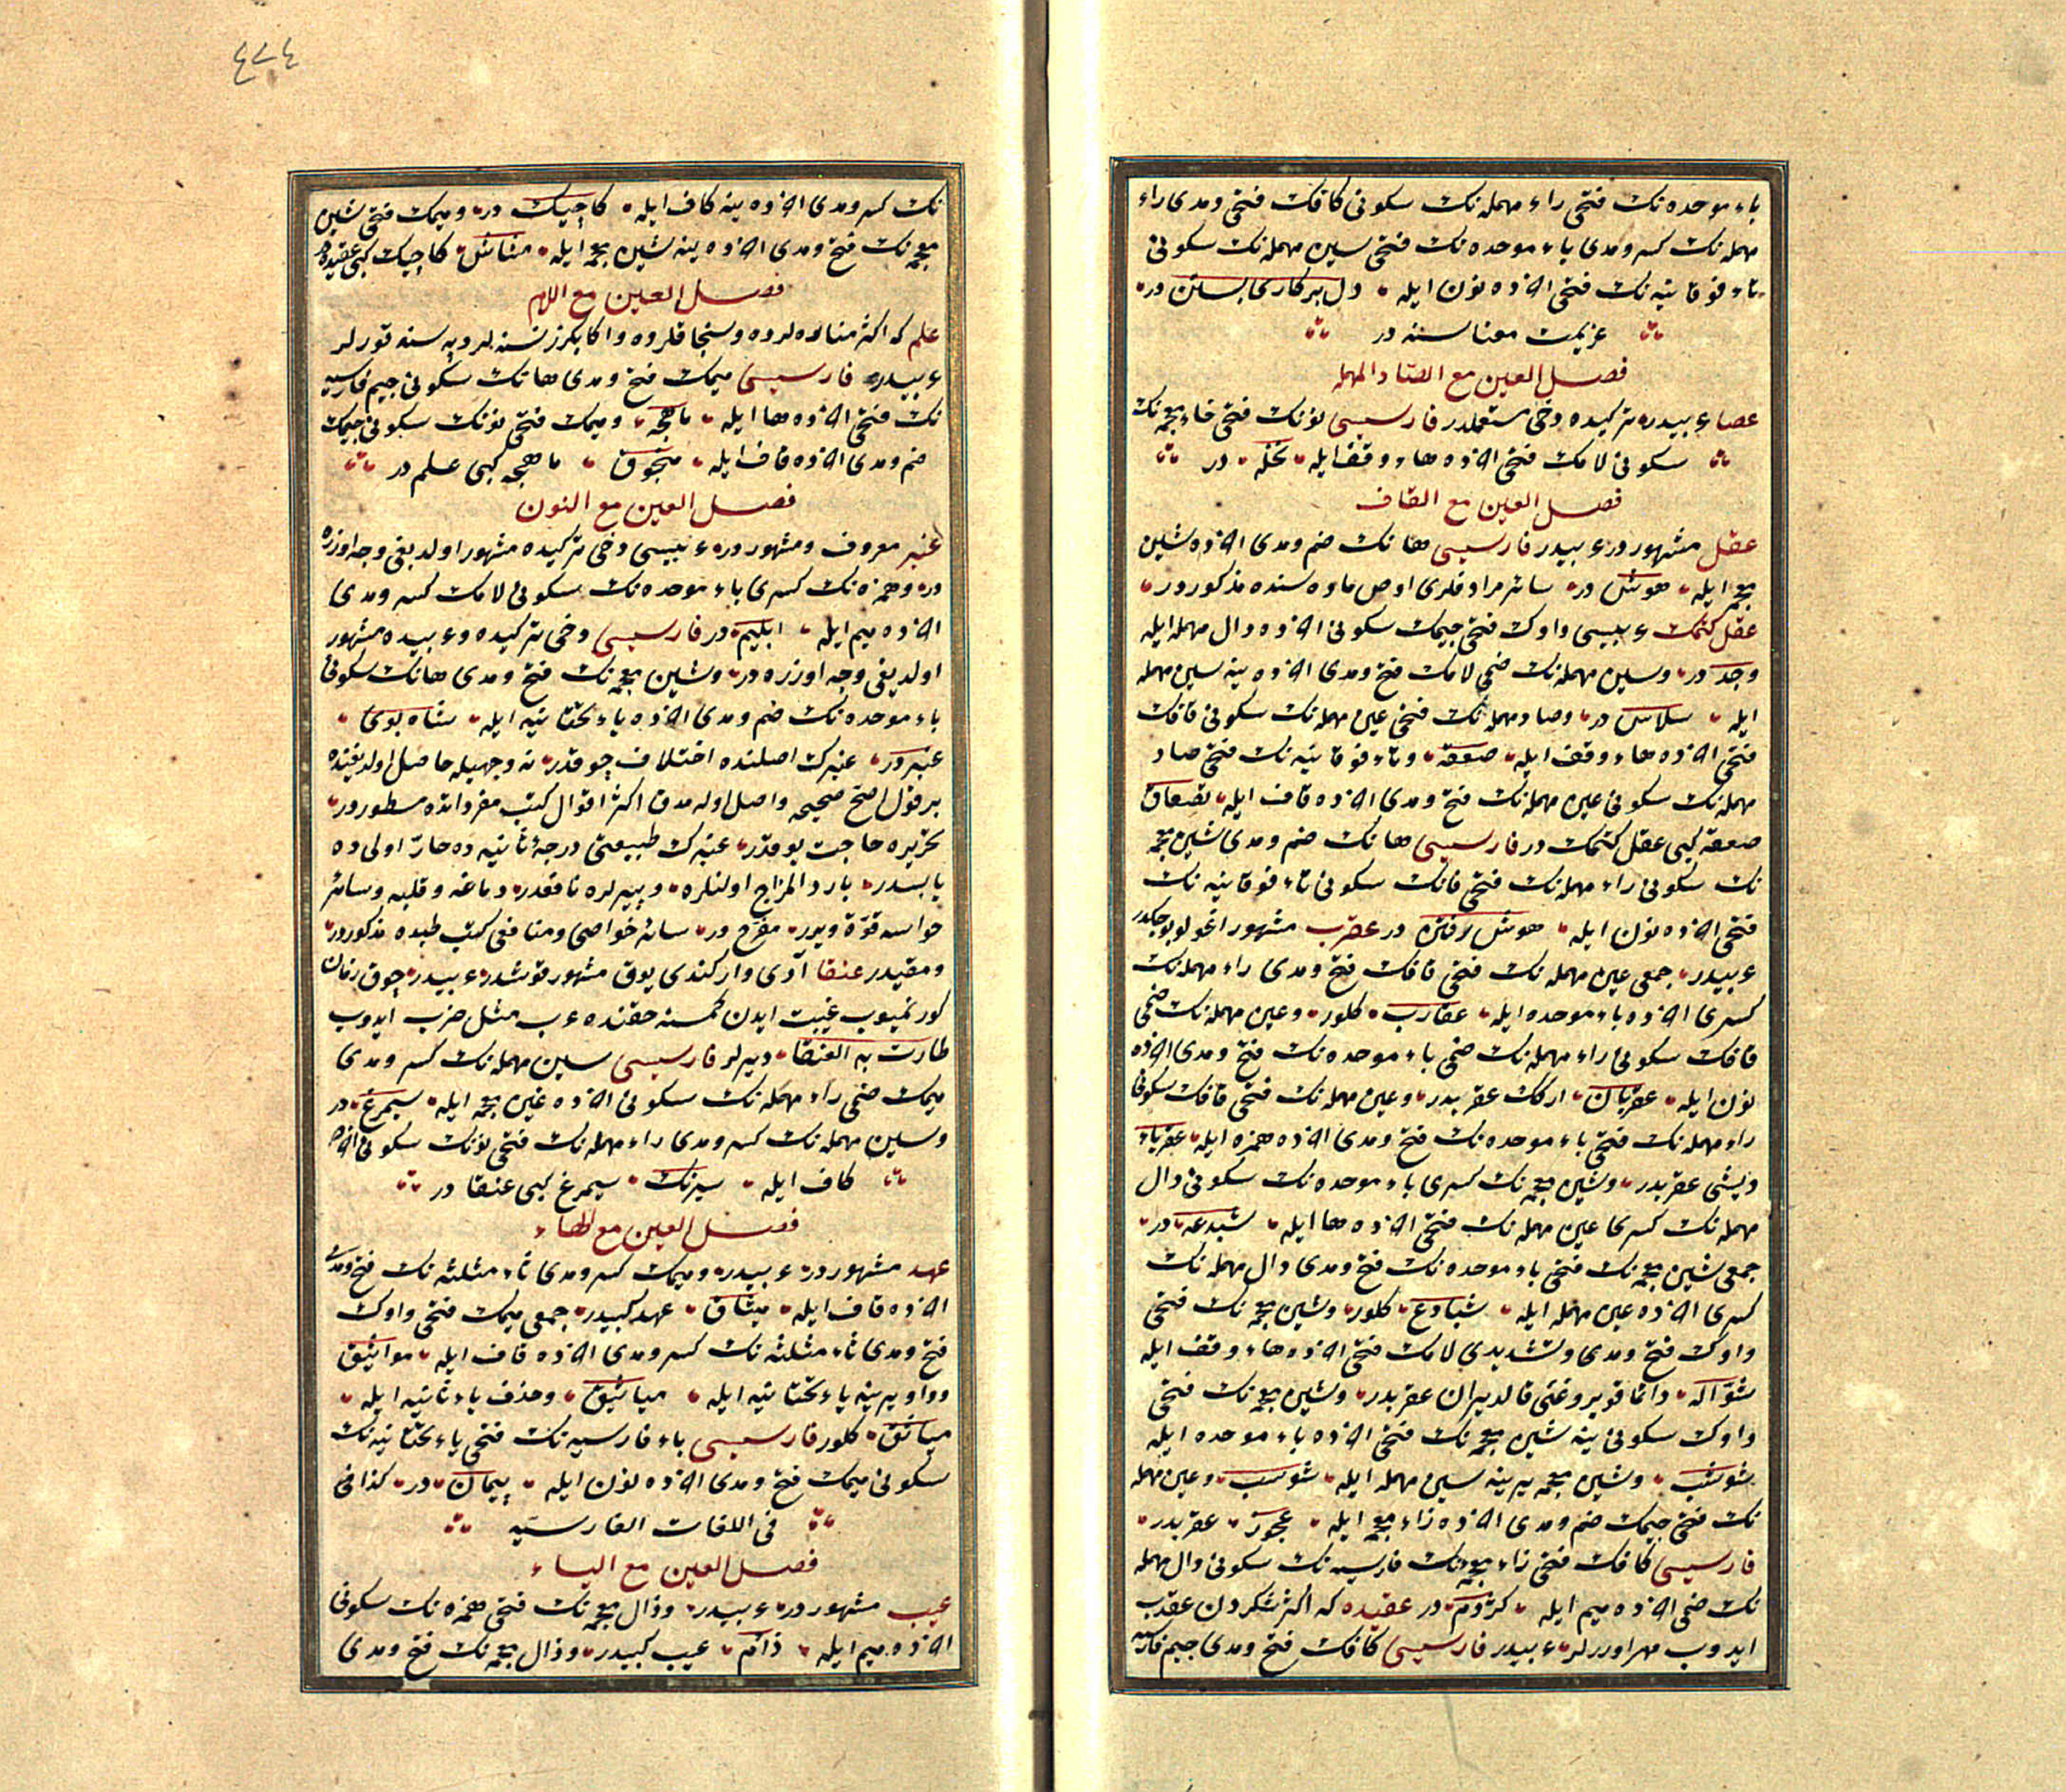 باء موحده نك فتحى راء مهمله نك سكونى كافك فتحى ومدى راء
مهمله نك كسر ومدى باء موحده نك فتحى سين مهمله نك سكونى
تاء فوقانيه نك فتحى اخرده نون ايله دل بر كارى بستن در
عزيمت معناسنه در
فصل العين مع الصاد المهمله
عصا عربيدر تركيده دخى مستعملدر فارسيسى نونك فتحى خاء معجمه نك
سكونى لامك فتحى اخرده هاء وقف ايله نخله در
فصل العين مع القاف
عقل مشهوردر عربيدر فارسيسى هانك ضم ومدى اخرده شين
معجمه ايله هوش در سائر مرادفلرى اوص ماده سنده مذكوردر
عقل كتمك عربيسى واوك فتحى جيمك سكونى اخرده دال مهمله ايله
وجد در وسين مهمله نك ضمى لامك فتح ومدى اخرده ينه سين مهمله
ايله سلاس در وصاد مهمله نك فتحى عين مهمله نك سكونى قافك
فتحى اخرده هاء وقف ايله صعقه وتاء فوقانيه نك فتحى صاد
مهمله نك سكونى عين مهمله نك فتح ومدى اخرده قاف ايله تصعاق
صعقه كبى عقل كتمك در فارسيسى هانك ضم ومدى شين معجمه
نك سكونى راء مهمله نك فتحى فانك سكونى تاء فوقانيه نك
فتحى اخرده نون ايله هوش رفتن در عقرب مشهور اغولو بوجكدر
عربيدر جمعى عين مهمله نك فتحى قافك فتح ومدى راء مهمله نك
كسرى اخرده باء موحده ايله عقارب كلور وعين مهمله نك ضمى
قافك سكونى راء مهمله نك ضمى باء موحده نك فتح ومدى اخرده
نون ايله عقربان اركك عقربدر وعين مهمله نك فتحى قافك سكونى
راء مهمله نك فتحى باء موحده نك فتح ومدى اخرده همزه ايله عقرباء
ديشى عقربدر وشين معجمه نك كسرى باء موحده نك سكونى دال
مهمله نك كسرى عين مهمله نك فتحى اخرده ها ايله شبدعه در
جمعى شين معجمه نك فتحى باء موحده نك فتح ومدى دال مهمله نك
كسرى اخرده عين مهمله ايله شبادع كلور وشين معجمه نك فتحى
واوك فتح ومدى وتشديدى لامك فتحى اخرده هاء وقف ايله
شوّاله دائما قويروغنى قالديران عقربدر وشين معجمه نك فتحى
واوك سكونى ينه شين معجمه نك فتحى اخرده باء موحده ايله
شوشب وشين معجمه يرينه سين مهمله ايله شوسب وعين مهمله
نك فتحى جيمك ضم ومدى اخرده زاء معجمه ايله عجوز عقربدر
فارسيسى كافك فتحى زاء معجمه نك فارسيه نك سكونى دال مهمله
نك ضمى اخرده ميم ايله كژدم در عقيده كه اكثر شكردن عقدب
ايدوب مهر اوررلر عربيدر فارسيسى كافك فتح ومدى جيم فارسيه
٤٧٤
نك كسر ومدى اخرده ينه كاف ايله كاچيك در وميمك فتحى شين
معجمه نك فتح ومدى اخرده ينه شين معجمه ايله مشاش كاچيك كبى عقيده در
فصل العين مع اللام
علم كه اكثر مناره لرده وسنجاقلرده واكا بكزر نسنه لر دپه سنه قورلر
عربيدر فارسيسى ميمك فتح ومدى هانك سكونى جيم فارسيه
نك فتحى اخرده ها ايله ماهچه وميمك فتحى نونك سكونى جيمك
ضم ومدى اخرده قاف ايله منجوق ماهچه كبى علم در
فصل العين مع النون
عنبر معروف ومشهوردر عربيسى دخى تركيده مشهور اولديغى وجه اوزره
در وهمزه نك كسرى باء موحده نك سكونى لامك كسر ومدى
اخرده ميم ايله ابليم در فارسيسى دخى تركيده وعربيده مشهور
اولديغى وجه اوزره در وشين معجمه نك فتح ومدى هانك سكونى
باء موحده نك ضم ومدى اخرده ياء تحتانيه ايله شاه بوى
عنبردر عنبرك اصلنده اختلاف چوقدر نه وجهيله حاصل اولديغنده
بر قول اصح صحيحه واصل اوله مدق اكثر اقوال كتب مفرداتده مسطوردر
تحريره حاجت يوقدر عنبرك طبيعتى درجهٔ ثانيه ده حارّ اولى ده
يابسدر بارد المزاج اولنلره وپيرلره نافعدر دماغه وقلبه وسائر
حواسه قوّة ويرر مفرّح در سائر خواصى ومنافعى كتب طبده مذكوردر
ومقيدر عنقا آدى وار كندى يوق مشهور قوشدر عربيدر چوق زمان
كورنميوب غيبت ايدن كمسنه حقنده عرب مثل ضرب ايدوب
طارت به العنقا ديرلر فارسيسى سين مهمله نك كسر ومدى
ميمك ضمى راء مهمله نك سكونى اخرده غين معجمه ايله سيمرغ در
وسين مهمله نك كسر ومدى راء مهمله نك فتحى نونك سكونى اخرده
كاف ايله سيرنك سيمرغ كبى عنقا در
فصل العين مع الهاء
عهد مشهوردر عربيدر وميمك كسر ومدى ثاء مثلثه نك فتح ومدى
اخرده قاف ايله ميثاق عهد كبيدر جمعى ميمك فتحى واوك
فتح ومدى ثاء مثلثه نك كسر ومدى اخرده قاف ايله مواثيق
وواو يرينه ياء تحتانيه ايله مياثيق وحذف ياء ثانيه ايله
مياثق كلور فارسيسى باء فارسيه نك فتحى ياء تحتانيه نك
سكونى ميمك فتح ومدى اخرده نون ايله پيمان در كذا فى
فى اللغات الفارسيه
فصل العين مع الياء
عيب مشهوردر عربيدر وذال معجمه نك فتحى همزه نك سكونى
اخرده ميم ايله ذأم عيب كبيدر وذال معجمه نك فتح ومدى